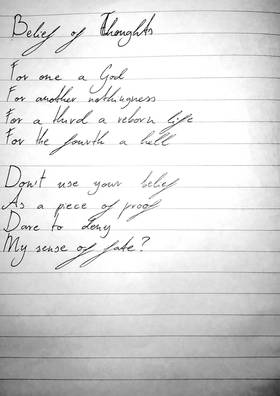 Belief of Thoughts
For one a God
For another nothingness
For a third a reborn life
For the fourth a hell
Don't use your belief
As a piece of proof
Dare to deny
My sense of fate?